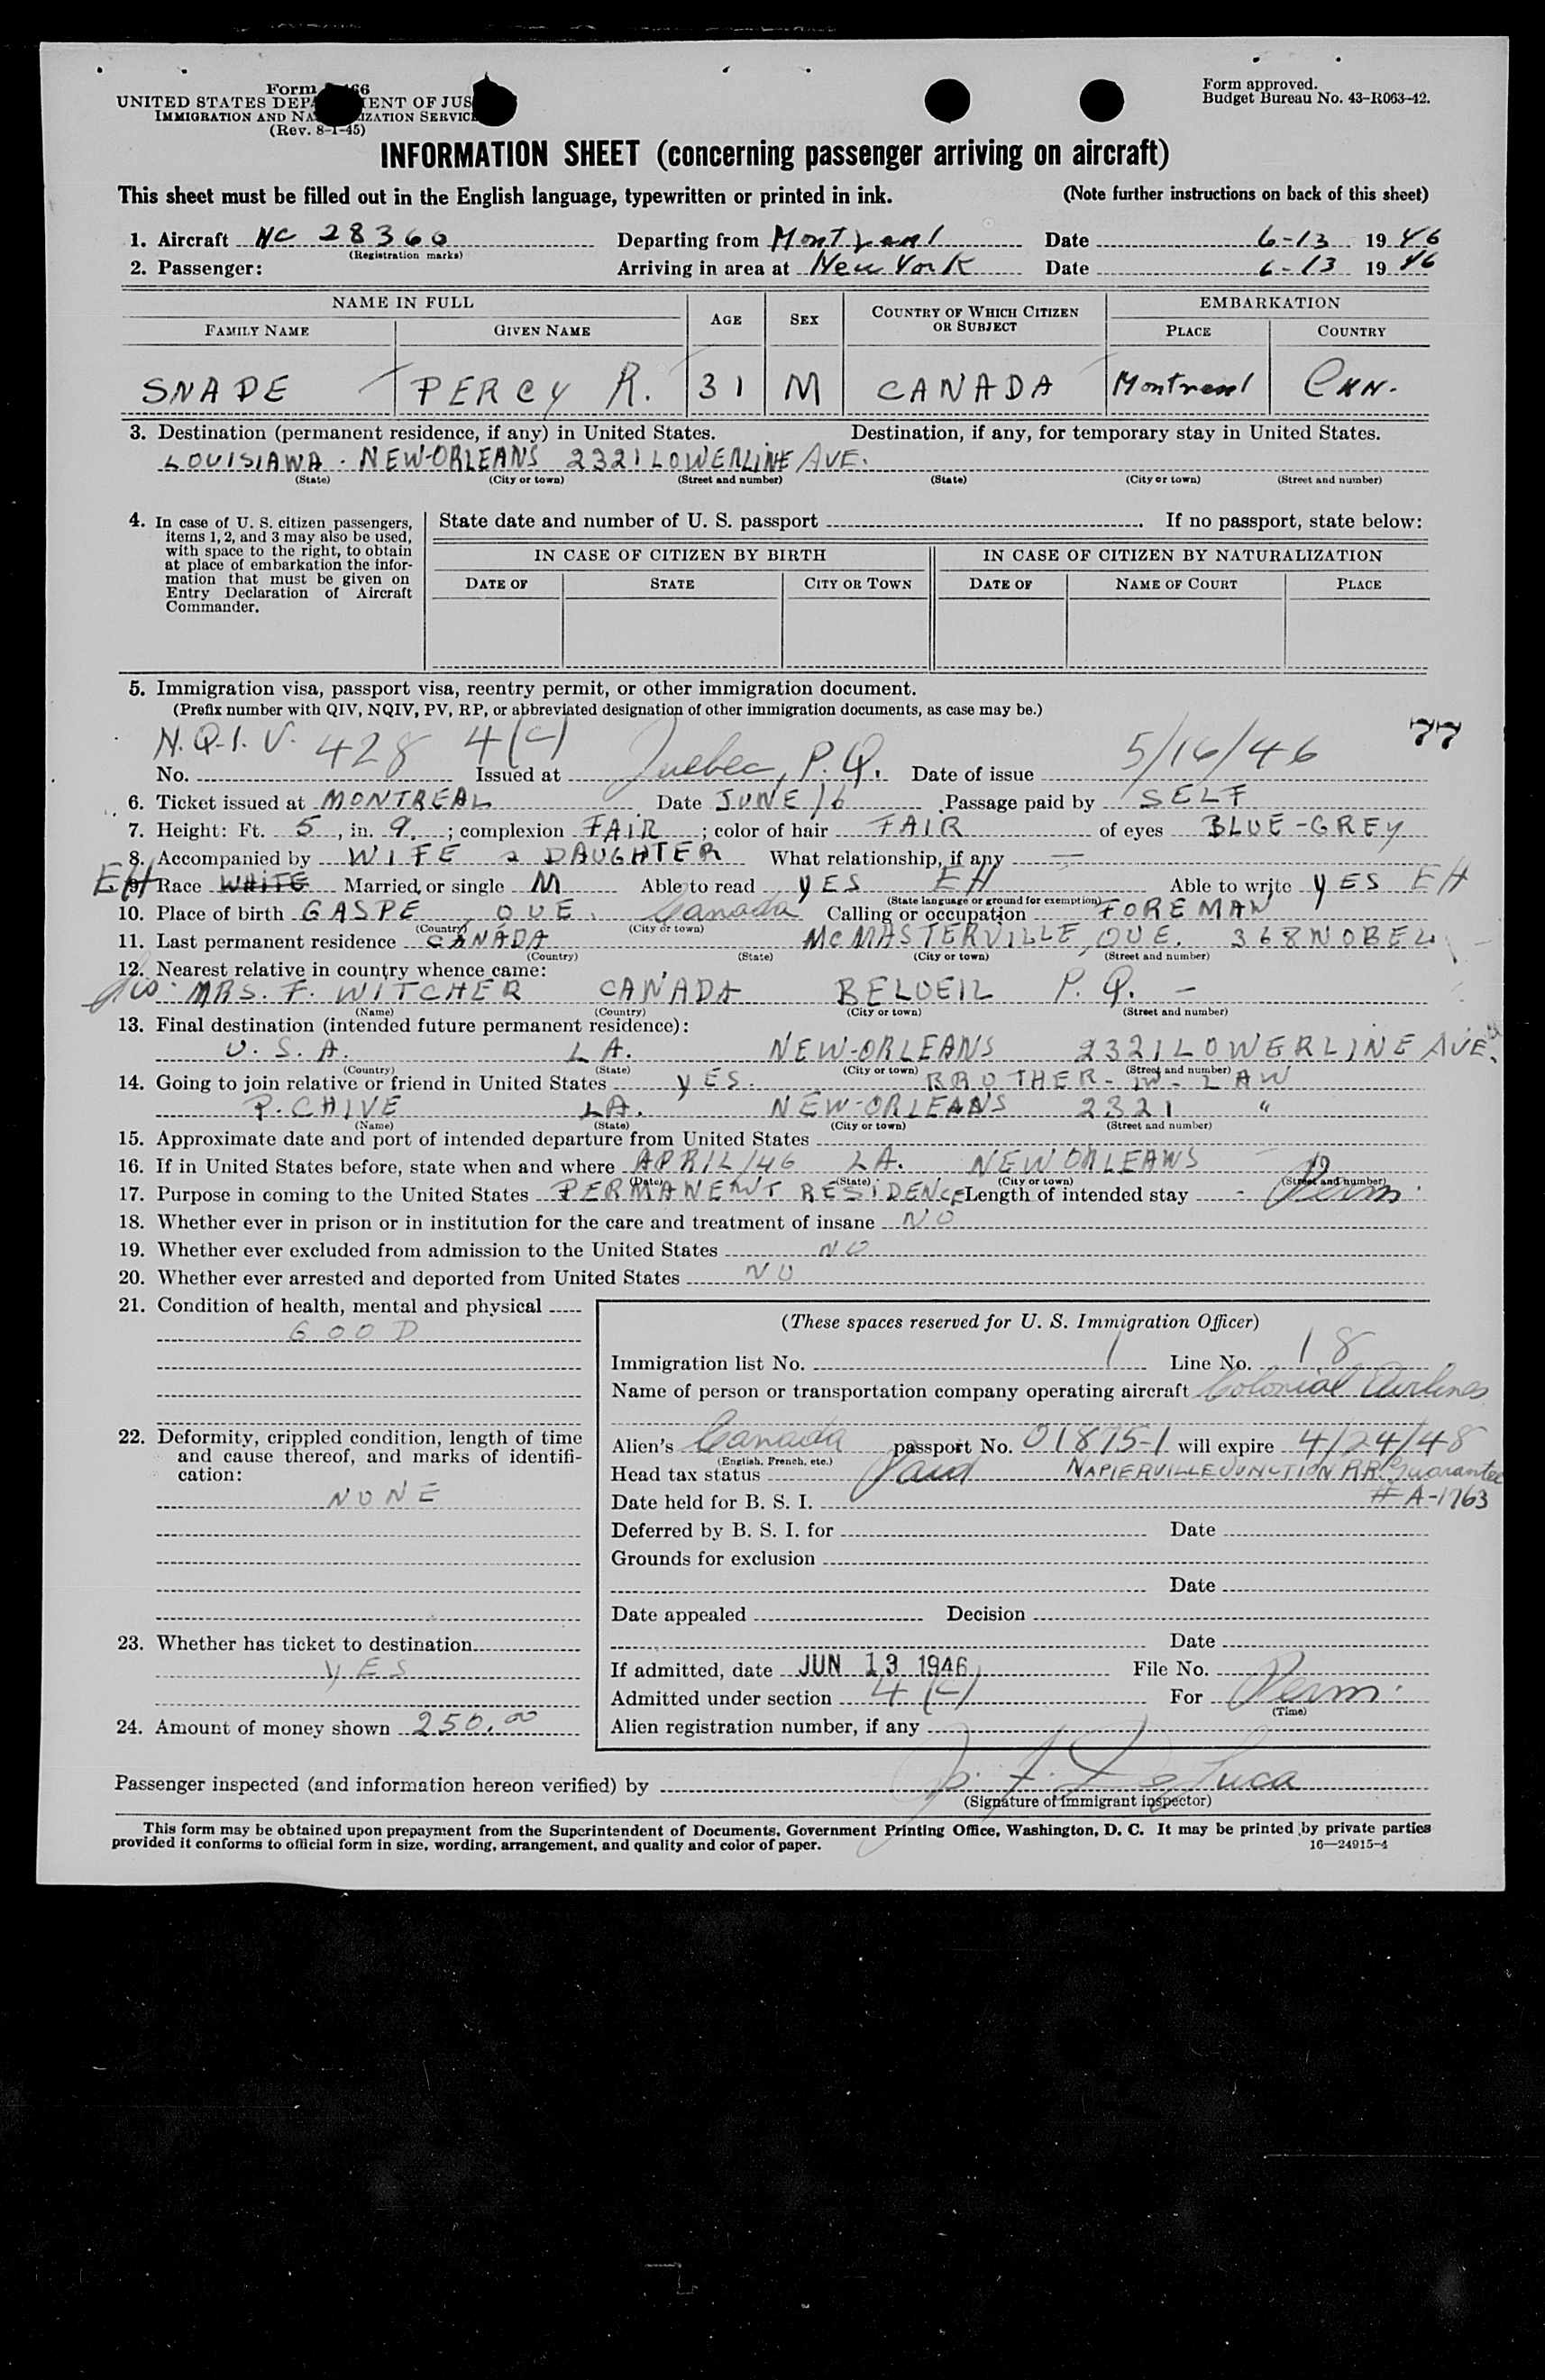 Form 66
UNITED STATES DEPA MENT OF JUS
IMMIGRATION AND NA IZATION SERVICE
(Rev. 8-1-45)
Form approved.
Budget Bureau No. 43-R063-42.
INFORMATION SHEET (concerning passenger arriving on aircraft)
This sheet must be filled out in the English language, typewritten or printed in ink. (Note further instructions on back of this sheet)
1. Aircraft NC 28360 Departing from Montreal Date 6-13 1946
(Registration marks)
2. Passenger: Arriving in area at New York Date 6-13 1946
NAME IN FULL AGE SEX COUNTRY OF WHICH CITIZEN OR SUBJECT EMBARKATION
FAMILY NAME GIVEN NAME PLACE COUNTRY
SNADE PERCY R. 31 M CANADA Montreal CAN.
3. Destination (permanent residence, if any) in United States. Destination, if any, for temporary stay in United States.
LOUISIANA. NEW-ORLEANS 2321 LOWERLINE AVE.
(State) (City or town) (Street and number) (State) (City or town) (Street and number)
4. In case of U. S. citizen passengers, items 1, 2, and 3 may also be used, with space to the right, to obtain at place of embarkation the information that must be given on Entry Declaration of Aircraft Commander.
State date and number of U. S. passport If no passport, state below:
IN CASE OF CITIZEN BY BIRTH IN CASE OF CITIZEN BY NATURALIZATION
DATE OF STATE CITY OR TOWN DATE OF NAME OF COURT PLACE
5. Immigration visa, passport visa, reentry permit, or other immigration document.
(Prefix number with QIV, NQIV, PV, RP, or abbreviated designation of other immigration documents, as case may be.)
77
N.Q.I.V. 428 4(c)
No. Issued at Quebec, P.Q. Date of issue 5/16/46
6. Ticket issued at MONTREAL Date JUNE /6 Passage paid by SELF
7. Height: Ft. 5, in. 9.; complexion FAIR; color of hair FAIR of eyes BLUE-GREY
8. Accompanied by WIFE & DAUGHTER What relationship, if any —
EH 9. Race WHITE Married or single M Able to read YES EH Able to write YES EH
(State language or ground for exemption)
10. Place of birth GASPE, QUE. Canada Calling or occupation FOREMAN
(Country) (City or town)
11. Last permanent residence CANADA McMASTERVILLE, QUE. 368 NOBEL
(Country) (State) (City or town) (Street and number)
12. Nearest relative in country whence came:
MRS. F. WITCHER CANADA BELOEIL P.Q. -
(Name) (Country) (City or town) (Street and number)
13. Final destination (intended future permanent residence):
U.S.A. LA. NEW-ORLEANS 2321 LOWERLINE AVE.
(Country) (State) (City or town) (Street and number)
14. Going to join relative or friend in United States YES. BROTHER-IN-LAW
P. CHIVE LA. NEW-ORLEANS 2321 "
(Name) (State) (City or town) (Street and number)
15. Approximate date and port of intended departure from United States
16. If in United States before, state when and where APRIL/46 LA. NEW ORLEANS
(Date) (State) (City or town) (Street and number)
17. Purpose in coming to the United States PERMANENT RESIDENCE Length of intended stay - Perm.
18. Whether ever in prison or in institution for the care and treatment of insane NO
19. Whether ever excluded from admission to the United States NO
20. Whether ever arrested and deported from United States NO
21. Condition of health, mental and physical
GOOD
22. Deformity, crippled condition, length of time and cause thereof, and marks of identification:
NONE
23. Whether has ticket to destination
YES
24. Amount of money shown 250.00
(These spaces reserved for U. S. Immigration Officer)
Immigration list No. 1 Line No. 18
Name of person or transportation company operating aircraft Colonial Airlines
Alien's Canada passport No. 01875-1 will expire 4/24/48
(English, French, etc.)
Head tax status Paid NAPIERVILLE JUNCTION RR. Guarantee
# A-1763
Date held for B. S. I.
Deferred by B. S. I. for Date
Grounds for exclusion
Date
Date appealed Decision
Date
If admitted, date JUN 13 1946 File No.
Admitted under section 4(c) For Perm.
(Time)
Alien registration number, if any
Passenger inspected (and information hereon verified) by J. F. DeLuca
(Signature of immigrant inspector)
This form may be obtained upon prepayment from the Superintendent of Documents, Government Printing Office, Washington, D. C. It may be printed by private parties
provided it conforms to official form in size, wording, arrangement, and quality and color of paper. 16—24915-4